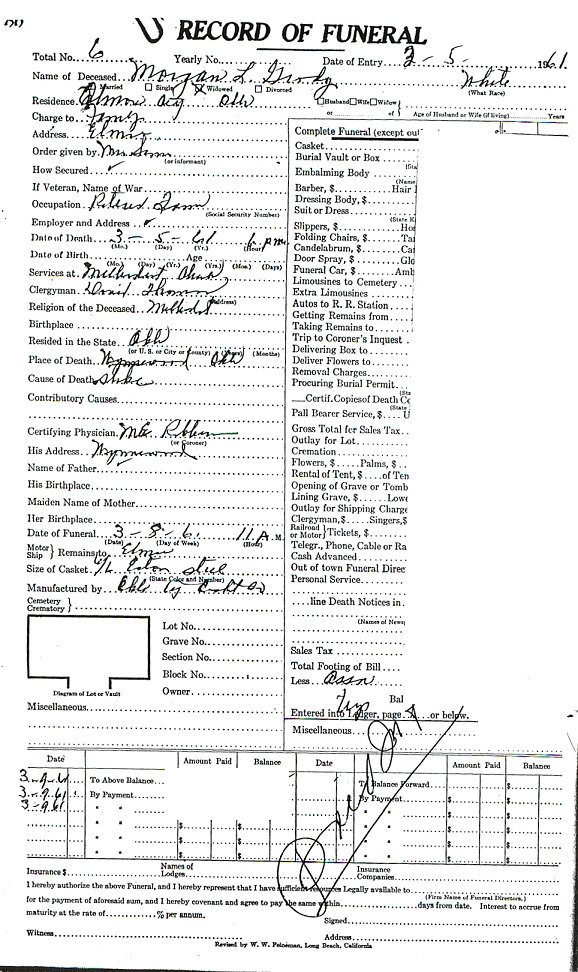 RECORD OF FUNERAL
Total No. 6 Yearly No. Date of Entry 3-5- 1961
Name of Deceased Morgan L
White
(What Race)
Married Single Widowed Divorced
Residence Elmore City Okla
Husband Wife Widow
or of Age of Husband or Wife (if living) Years
Charge to Family
Address
Complete Funeral (except out
Order given by
(or informant)
How Secured
If Veteran, Name of War
Occupation
(Social Security Number)
Employer and Address
Date of Death 3-5-61 6 pm
(Mo.) (Day) (Yr.) (Hour)
Date of Birth Age
(Mo.) (Day) (Yr.) (Yrs.) (Mos.) (Days)
Services at Methodist Church
Clergyman David
(Address)
Religion of the Deceased Methodist
Birthplace
Resided in the State Okla
(or U. S. or City or County) (Years) (Months)
Place of Death Wynnewood Okla
Cause of Death
Contributory Causes
Certifying Physician
(or Coroner)
His Address Wynnewood
Name of Father
His Birthplace
Maiden Name of Mother
Her Birthplace
Date of Funeral 3-8-6 11 A.M.
(Date) (Day of Week) (Hour)
Motor
Ship } Remains to
Size of Casket steel
(State Color and Number)
Manufactured by Okla
Cemetery
Crematory }
Lot No.
Grave No.
Section No.
Block No.
Owner
Diagram of Lot or Vault
Miscellaneous
Casket
Burial Vault or Box
(Sta
Embalming Body
(Name
Barber, $ Hair
Dressing Body, $
Suit or Dress
(State K
Slippers, $ Hos
Folding Chairs, $ Ta
Candelabrum, $ Ca
Door Spray, $ Glo
Funeral Car, $ Amb
Limousines to Cemetery
Extra Limousines
Autos to R. R. Station
Getting Remains from
Taking Remains to
Trip to Coroner's Inquest
Delivering Box to
Deliver Flowers to
Removal Charges
Procuring Burial Permit
(Sta
Certif. Copies of Death Ce
(State
Pall Bearer Service, $ U
Gross Total for Sales Tax
Outlay for Lot
Cremation
Flowers, $ Palms, $
Rental of Tent, $ of Ten
Opening of Grave or Tomb
Lining Grave, $ Lowe
Outlay for Shipping Charge
Clergyman, $ Singers, $
Railroad
or Motor } Tickets, $
Telegr., Phone, Cable or Ra
Cash Advanced
Out of town Funeral Direc
Personal Service
line Death Notices in
(Names of News
Sales Tax
Total Footing of Bill
Less Assn
Bal
Entered into Ledger, page or below.
Miscellaneous
Date Amount Paid Balance Date Amount Paid Balance
3-9-61 To Above Balance To Balance Forward
3-9-61 By Payment By Payment
3-9-61 " " " "
" " " "
" " " "
" " " "
Insurance $ Names of Lodges Insurance Companies
I hereby authorize the above Funeral, and I hereby represent that I have sufficient resources Legally available to
(Firm Name of Funeral Directors.)
for the payment of aforesaid sum, and I hereby covenant and agree to pay the same within days from date. Interest to accrue from
maturity at the rate of % per annum. Signed
Witness Address
Revised by W. W. Feineman, Long Beach, California